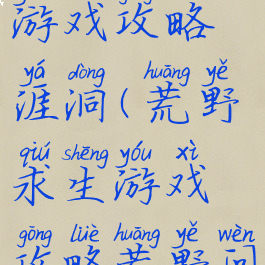 游戏攻略
yá dòng huāng yě
涯洞(荒野
qiú shēng yóu xì
求生游戏
gōng lüè huāng yě wèn
攻略荒野问